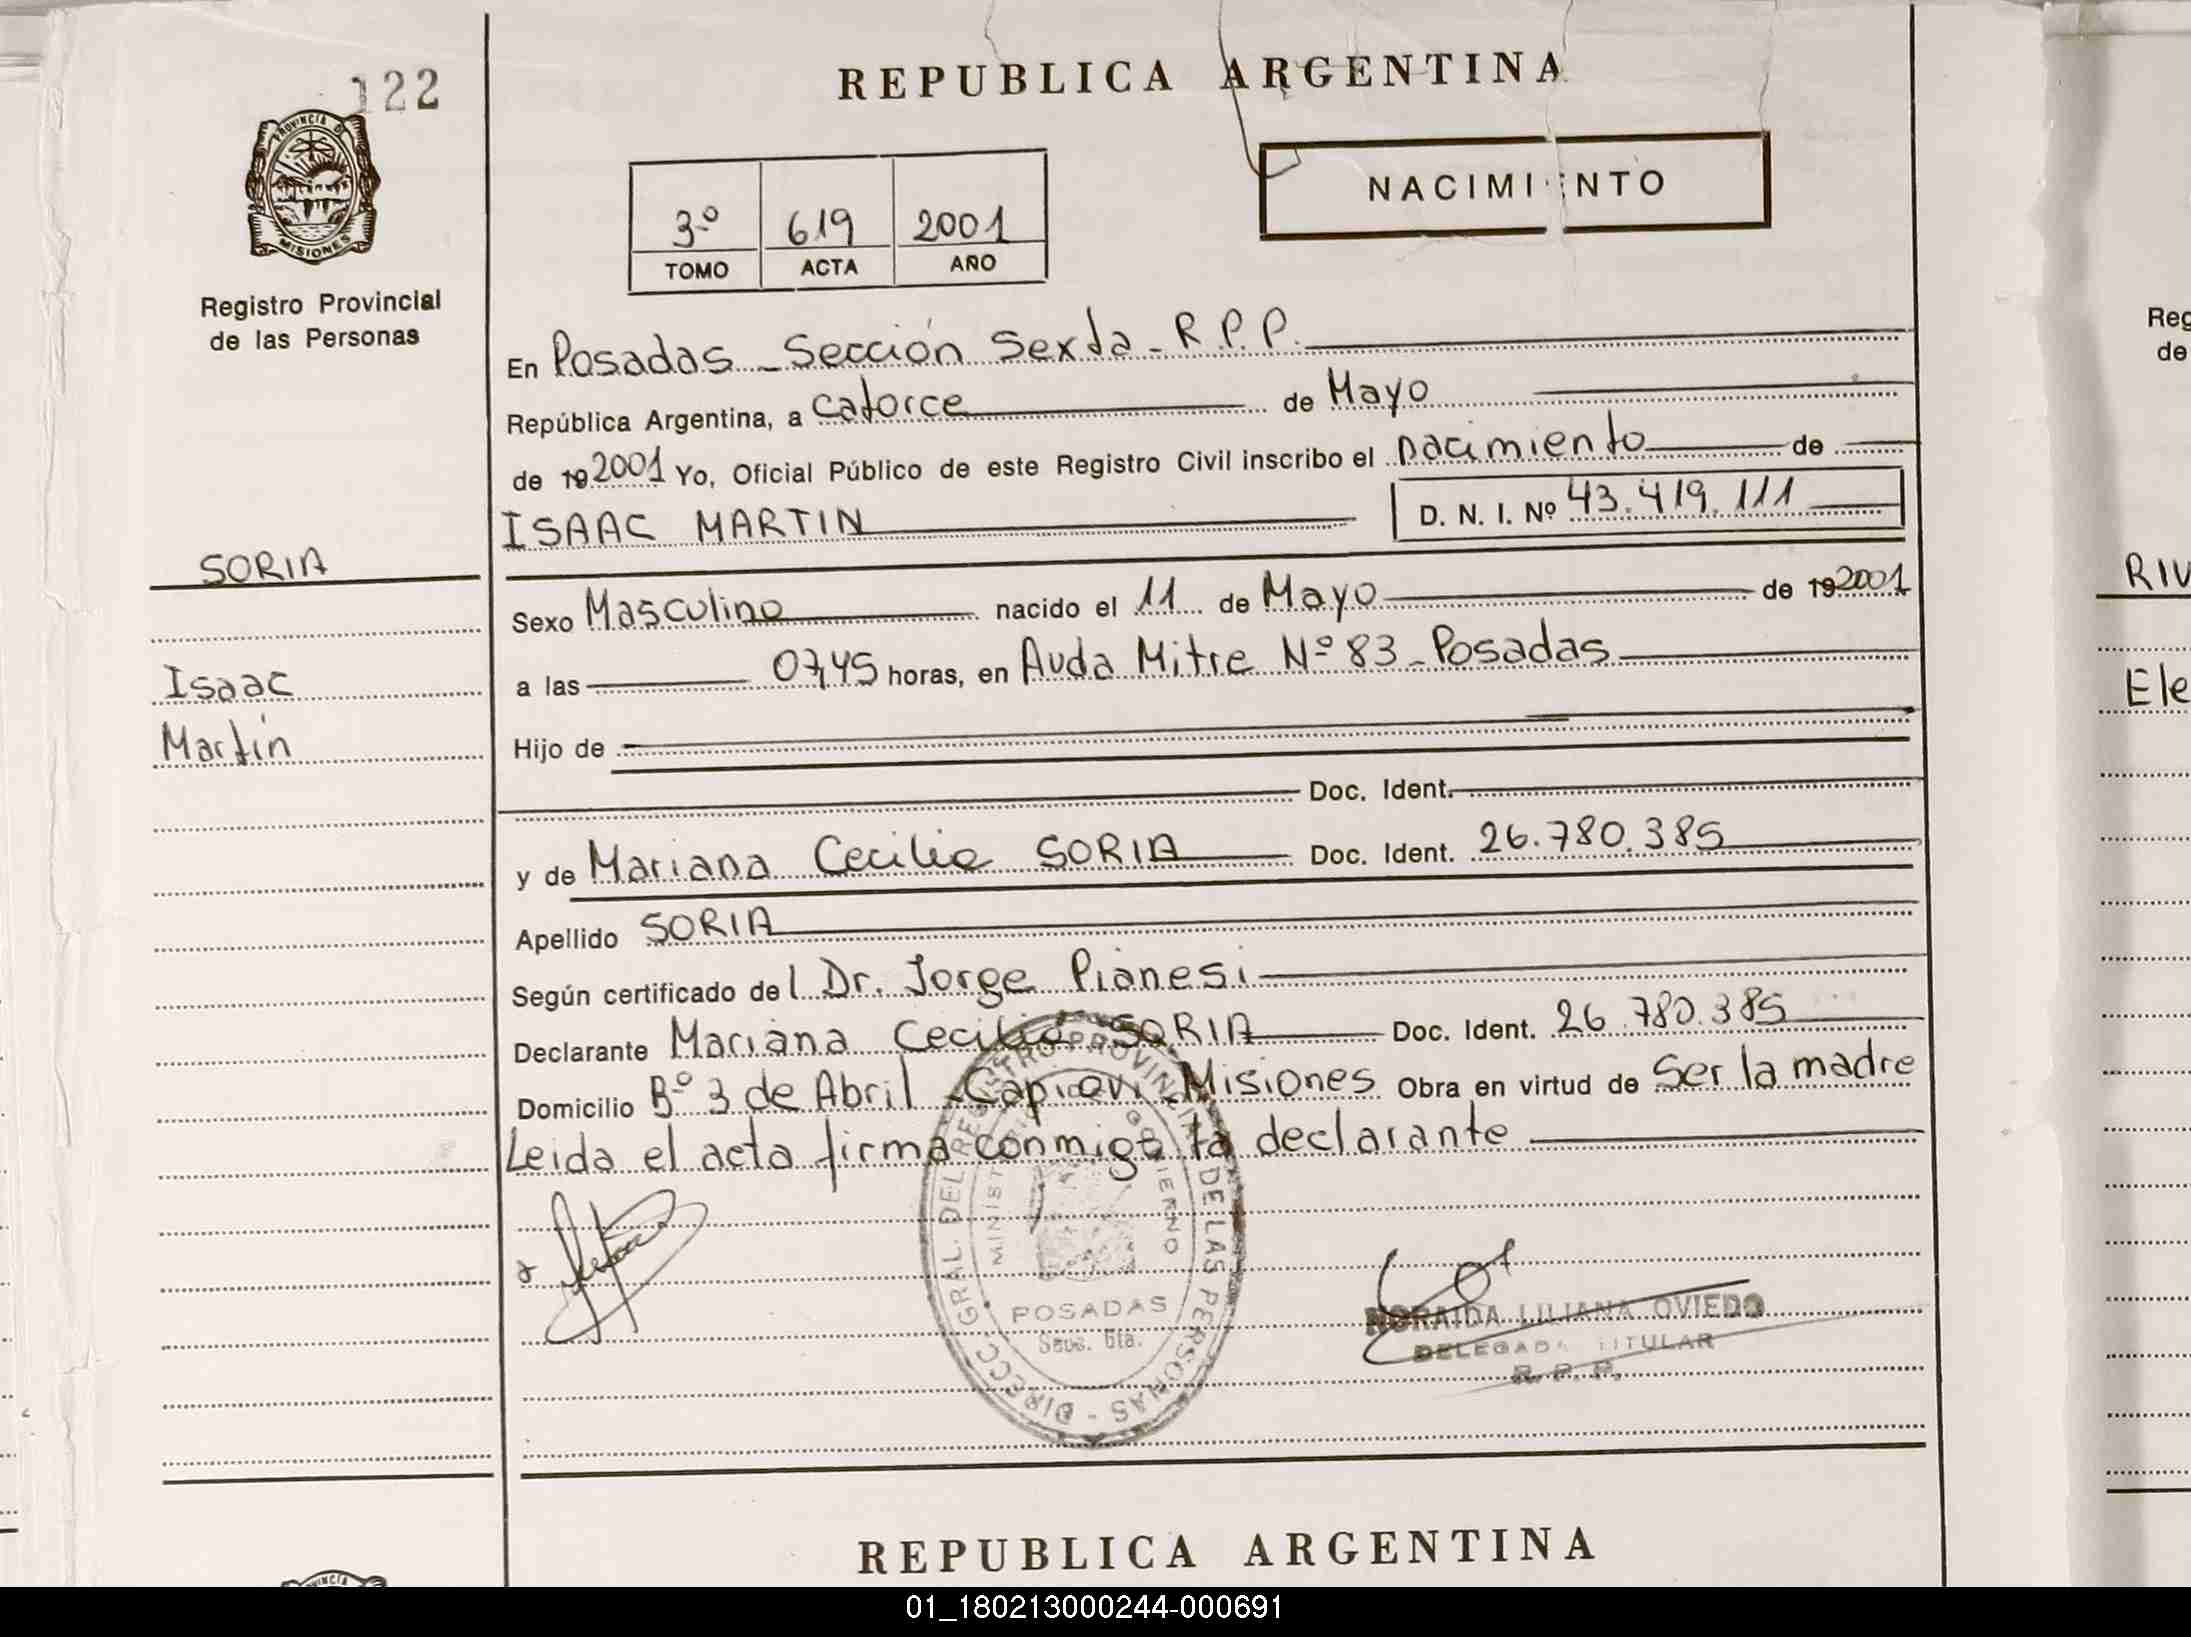 122
PROVINCIA DE
MISIONES
Registro Provincial
de las Personas
SORIA
Isaac
Martín
REPUBLICA ARGENTINA
3º 619 2001
TOMO ACTA AÑO
NACIMIENTO
En Posadas - Sección Sexta - R.P.P.
República Argentina, a catorce de Mayo
de 19 2001 Yo, Oficial Público de este Registro Civil inscribo el nacimiento de
ISAAC MARTIN D. N. I. Nº 43.419.111
Sexo Masculino nacido el 11 de Mayo de 19 2001
a las 07,45 horas, en Avda Mitre Nº 83 - Posadas
Hijo de
Doc. Ident.
y de Mariana Cecilia SORIA Doc. Ident. 26.780.385
Apellido SORIA
Según certificado del Dr. Jorge Pianesi
Declarante Mariana Cecilia SORIA Doc. Ident. 26.780.385
Domicilio Bº 3 de Abril - Capioví - Misiones Obra en virtud de Ser la madre
Leida el acta firma conmigo la declarante
DIRECC. GRAL. DEL REGISTRO PROVINCIAL DE LAS PERSONAS
MINISTERIO GOBIERNO
POSADAS
Secc. 6ta.
NORAIDA LILIANA OVIEDO
DELEGADA TITULAR
R. P. P.
REPUBLICA ARGENTINA
Reg
de
RIV
Ele
01_180213000244-000691